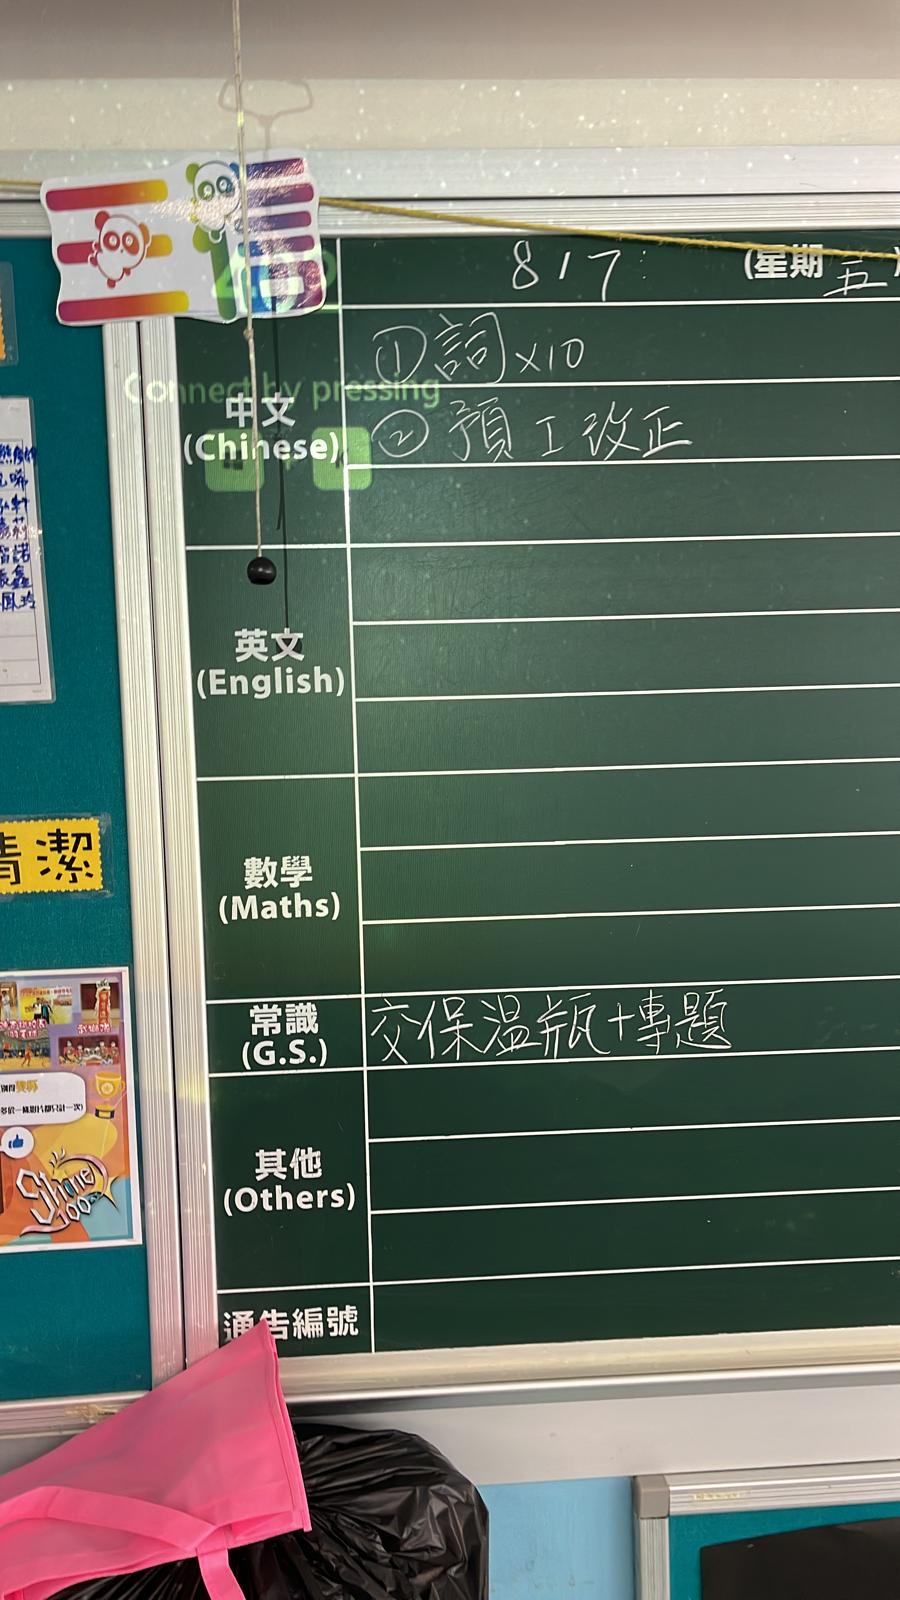 8/7
(星期五)
①詞x10
②預工改正
Connect by pressing
中文
(Chinese)
英文
(English)
數學
(Maths)
常識
(G.S.)
交保溫瓶+專題
其他
(Others)
通告編號
清潔
Share
100